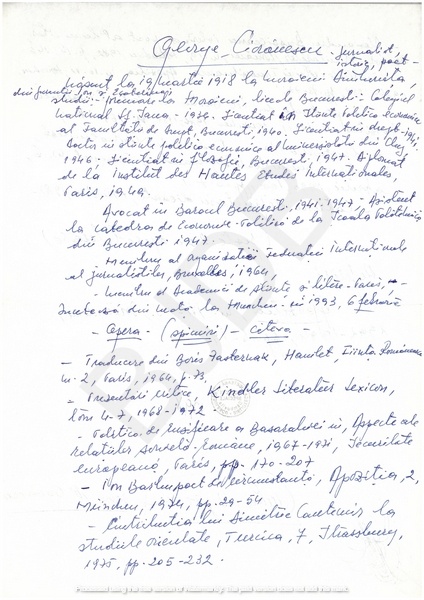 George Ciorănescu - jurnalist,
istoric, poet -
Născut la 19 martie 1918 la Moroieni Dimbovița,
din părinții Ion și Ecaterina
Studii: - Primare la Moroieni, liceale București: Colegiul
național Sf. Sava - 1936. Licențiat în Științe Politico economice
al Facultății de Drept, București 1940. Licențiat în drept - 1941.
Doctor în științe politico economice al Universității din Cluj,
1946. Licențiat în filosofie, București, 1947. Diplomat
de la Institut des Hautes Etudes Internationales,
Paris, 1949.
Avocat în Baroul București, 1941-1947, Asistent
la catedra de Economie-Politică de la Școala Politehnică
din București 1947.
Membru al organisației Federației internaționale
al jurnaliștilor, Bruxelles, 1964,
- membru al Academiei de științe și litere - Paris,
Încetează din viață la München în 1993, 6 februarie
- Opera - (opinii) - citeva -
- Traducere din Boris Pasternak, Hamlet, Ființa Românească
nr. 2, Paris, 1964, p. 73,
- Prezentări critice, Kindler Literatur Lexicon,
tom 4-7, 1968-1972
- Politica de rusificare a Basarabiei în, Aspecte ale
relațiilor sovieto-române, 1967-1971, Securitate
europeană, Paris, pp. 170-207
- Ion Barbu poet de circumstanță, Apoziția, 2,
München, 1974, pp. 29-54
- Contribuția lui Dimitrie Cantemir la
studiile orientale, Turcica, 7, Strassburg,
1975, pp. 205-232.